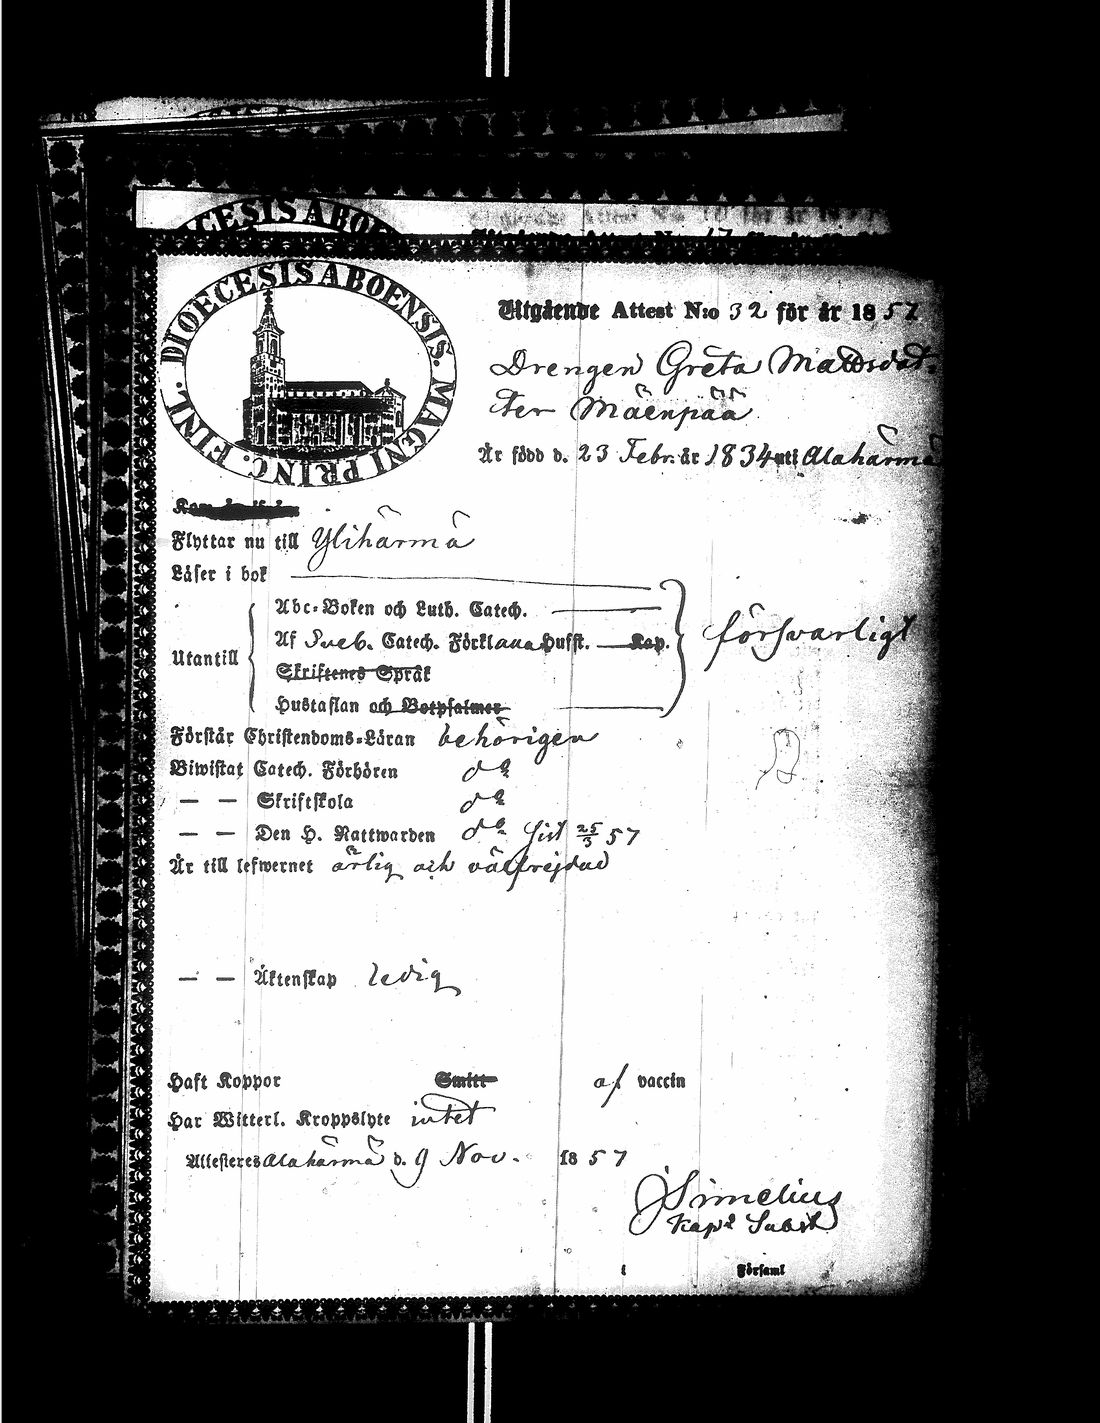 DIOECESIS ABOENSIS. MAGNI PRINC. FINL.
Utgående Attest N:o 32 för år 1857
Drengen Greta Mattsdot-
ter Mäenpää
Är född d. 23 Febr. år 1834 uti Alahärmä
Flyttar nu till Ylihärmä
Läser i bok
Utantill
Abc-Boken och Luth. Catech.
Af Sveb. Catech. Förkl Husst. Kap.
Skriftenes Språk
Hustaflan och Botpsalmer
försvarligt
Förstår Christendoms-Läran behörigen
Biwistat Catech. Förhören do
— — Skriftskola do
— — Den H. Nattwarden do sist 25/3 57
Är till lefwernet ärlig och välfrejdad
— — Äktenskap ledig
Haft Koppor Smitt af vaccin
Har Witterl. Kroppslyte intet
Attesteres Alahärmä d. 9 Nov. 1857
J Simelius
Kapl Subst
i Församl